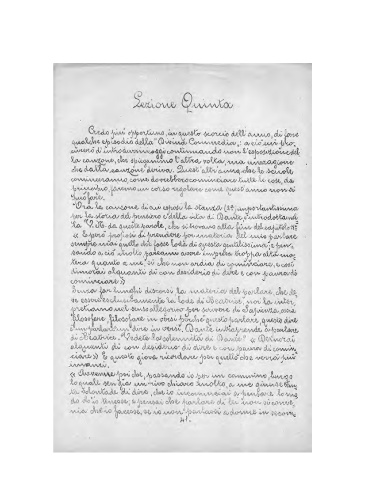 Lezione Quinta
Credo più opportuno, in questo scorcio dell'anno, di fare
qualche episodio della "Divina Commedia,, : a ciò mi pro-
curerò d'introdurmi oggi continuando non l'esposizione del-
la canzone, che spiegammo l'altra volta, ma una azione
che dalla canzone deriva. Quest'altr'anno, che le scuole
cominceranno come dovrebbero cominciare tutte le cose, da
principio, faremo un corso regolare come quest'anno non si
può fare.
Ora la canzone di cui esposi la stanza (2ª), importantissima
per la storia del pensiero e della vita di Dante, è introdotta nel-
la V. N. da queste parole, che si trovano alla fine del capitolo 18º
« E però proposi di prendere per materia del mio parlare
sempre mai quello che fosse loda di questa gentilissima; e pen-
sando a ciò molto pareami avere impresa troppo alta ma-
tera quanto a me, sì che non ardia di cominciare; e così
dimorai alquanti dì con desiderio di dire e con paura di
cominciare »
Senza far lunghi discorsi la materia del parlare che
essere esclusivamente la loda di Beatrice, noi la inter-
pretiamo nel senso allegorico per amore di Sapienza,
filosofare in versi
un parlare in dire in versi. Dante intraprende a parlare
di Beatrice. "Vedete lo splendore di Dante" « Dimorai
alquanti dì con desiderio di dire e con paura di comin-
ciare » E questo giova ricordare per quello che verrà più
innanzi.
« Avvenne poi che, passando io per un cammino, lungo
lo quale sen gìa un rivo chiaro molto, a me giunse tan-
ta volontade di dire, che io incominciai a pensare lo mo-
do ch'io tenesse; e pensai che parlare di lei non si conve-
nia che io facesse, se io non parlassi a donne in secon-
41.